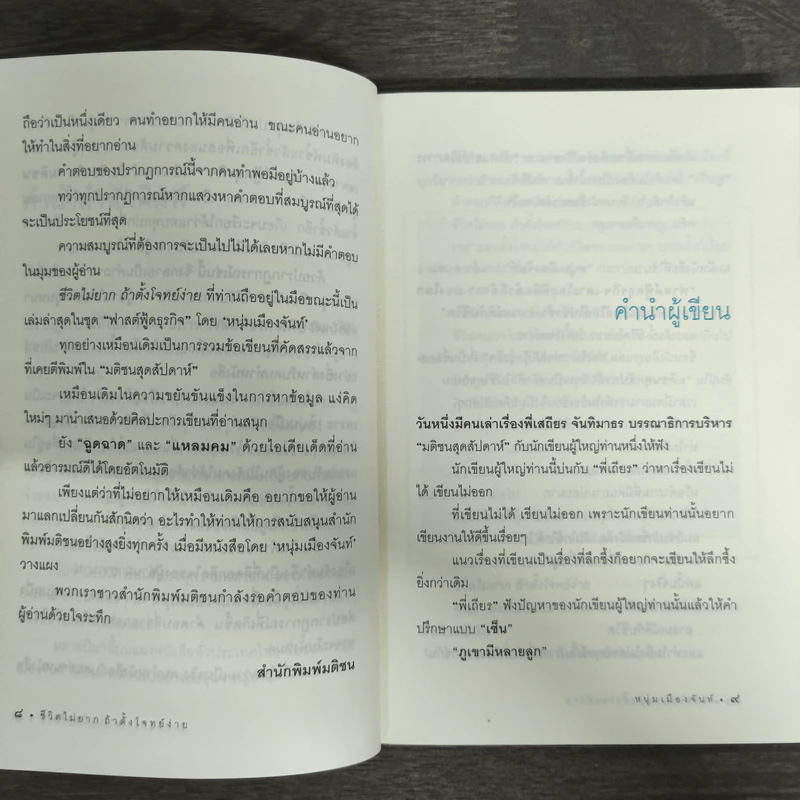 ถือว่าเป็นหนึ่งเดียว คนทำอยากให้มีคนอ่าน ขณะคนอ่านอยาก
ให้ทำในสิ่งที่อยากอ่าน
คำตอบของปรากฏการณ์นี้จากคนทำพอมีอยู่บ้างแล้ว
ทว่าทุกปรากฏการณ์หากแสวงหาคำตอบที่สมบูรณ์ที่สุดได้
จะเป็นประโยชน์ที่สุด
ความสมบูรณ์ที่ต้องการจะเป็นไปไม่ได้เลยหากไม่มีคำตอบ
ในมุมของผู้อ่าน
ชีวิตไม่ยาก ถ้าตั้งโจทย์ง่าย ที่ท่านถืออยู่ในมือขณะนี้เป็น
เล่มล่าสุดในชุด “ฟาสต์ฟู้ดธุรกิจ” โดย ‘หนุ่มเมืองจันท์’
ทุกอย่างเหมือนเดิมเป็นการรวมข้อเขียนที่คัดสรรแล้วจาก
ที่เคยตีพิมพ์ใน “มติชนสุดสัปดาห์”
เหมือนเดิมในความขยันขันแข็งในการหาข้อมูล แง่คิด
ใหม่ๆ มานำเสนอด้วยศิลปะการเขียนที่อ่านสนุก
ยัง “ฉูดฉาด” และ “แหลมคม” ด้วยไอเดียเด็ดที่อ่าน
แล้วอารมณ์ดีได้โดยอัตโนมัติ
เพียงแต่ว่าที่ไม่อยากให้เหมือนเดิมคือ อยากขอให้ผู้อ่าน
มาแลกเปลี่ยนกันสักนิดว่า อะไรทำให้ท่านให้การสนับสนุนสำนัก
พิมพ์มติชนอย่างสูงยิ่งทุกครั้ง เมื่อมีหนังสือโดย ‘หนุ่มเมืองจันท์’
วางแผง
พวกเราชาวสำนักพิมพ์มติชนกำลังรอคำตอบของท่าน
ผู้อ่านด้วยใจระทึก
สำนักพิมพ์มติชน
๘ • ชีวิตไม่ยาก ถ้าตั้งโจทย์ง่าย
คำนำผู้เขียน
วันหนึ่งมีคนเล่าเรื่องพี่เสถียร จันทิมาธร บรรณาธิการบริหาร
“มติชนสุดสัปดาห์” กับนักเขียนผู้ใหญ่ท่านหนึ่งให้ฟัง
นักเขียนผู้ใหญ่ท่านนี้บ่นกับ “พี่เถียร” ว่าหาเรื่องเขียนไม่
ได้ เขียนไม่ออก
ที่เขียนไม่ได้ เขียนไม่ออก เพราะนักเขียนท่านนั้นอยาก
เขียนงานให้ดีขึ้นเรื่อยๆ
แนวเรื่องที่เขียนเป็นเรื่องที่ลึกซึ้งก็อยากจะเขียนให้ลึกซึ้ง
ยิ่งกว่าเดิม
“พี่เถียร” ฟังปัญหาของนักเขียนผู้ใหญ่ท่านนั้นแล้วให้คำ
ปรึกษาแบบ “เซ็น”
“ภูเขามีหลายลูก”
หนุ่มเมืองจันท์ • ๙